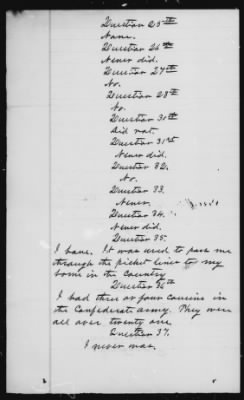 Question 25th
None.
Question 26th
Never did.
Question 27th
No.
Question 28th
No.
Question 30th
Did not.
Question 31st
Never did.
Question 32.
No.
Question 33.
Never
Question 34.
Never did.
Question 35.
I have. It was used to pass me
through the picket lines to my
home in the Country
Question 36th
I had three or four cousins in
the Confederate army. They were
all over twenty one.
Question 37.
I never was.